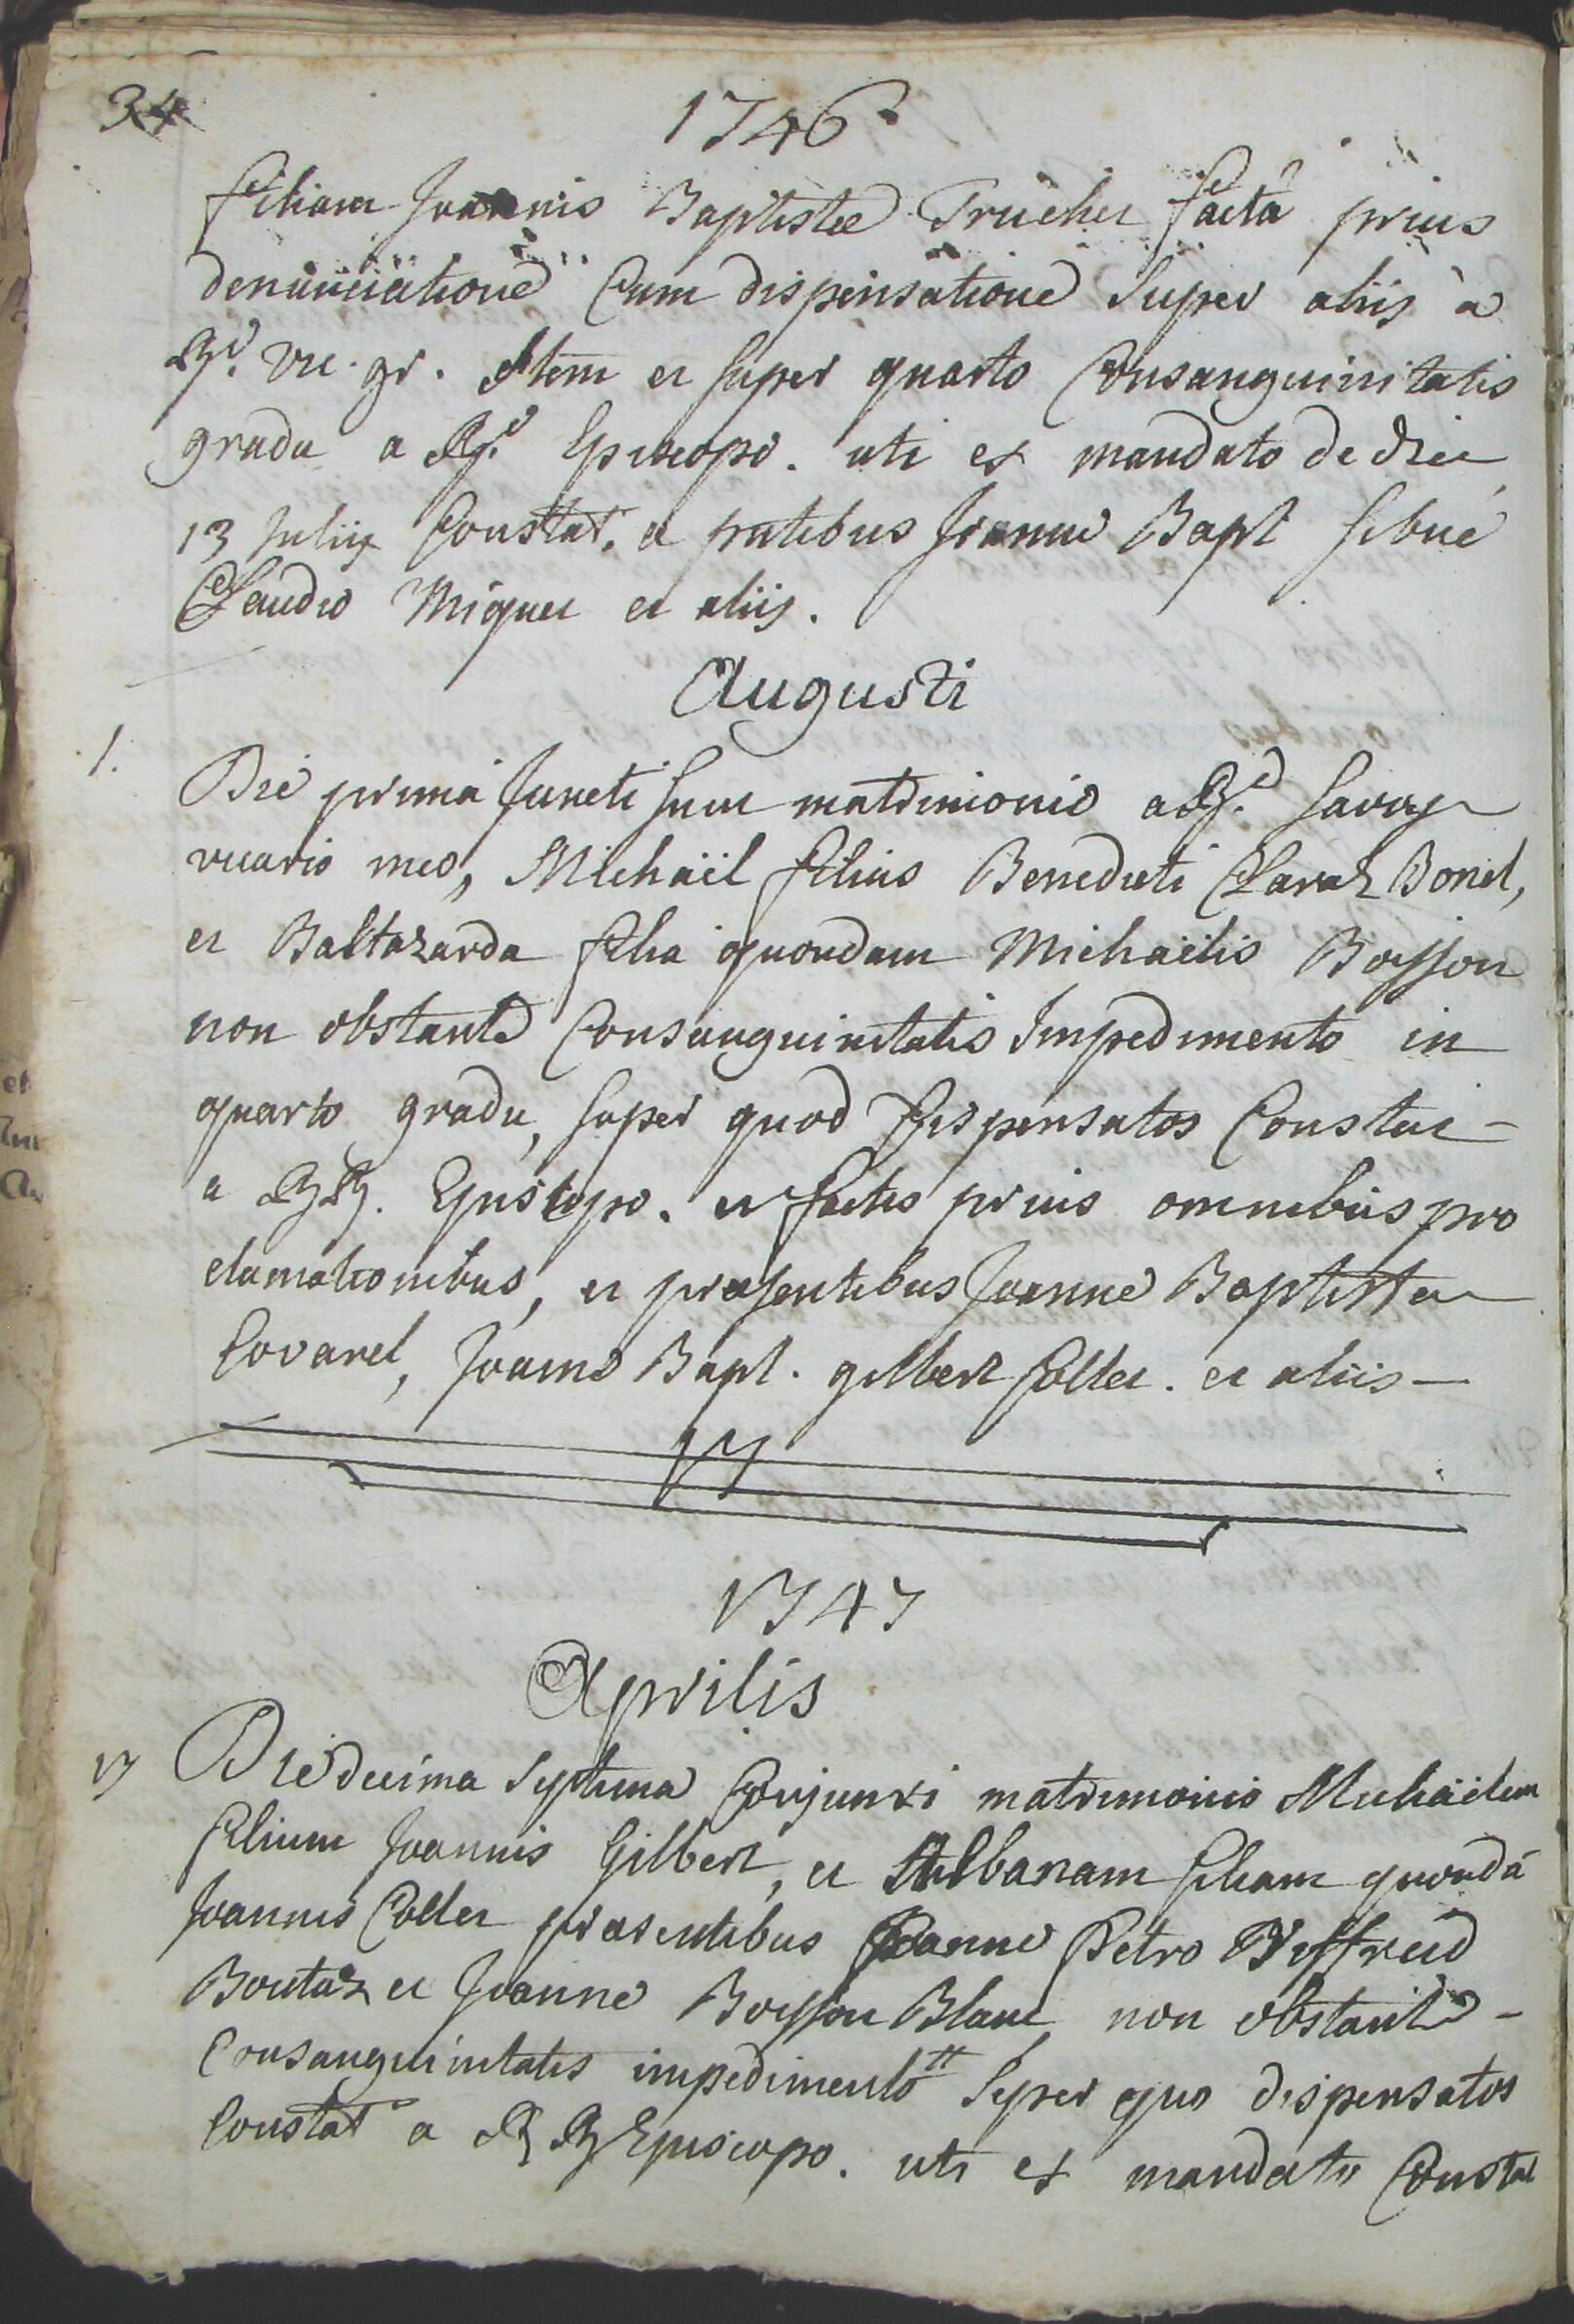 34
1746
filiam Joannis Baptistæ Truchet facta prius
denunciatione Cum dispensatione Super aliis à
Rd. vic. gr. Item et super quarto Consanguinitatis
gradu a Rd. Episcopo. uti ex mandato de die
13 Julii Constat. et pntibus Joanne Bapt Sibué
Claudio Miquet et aliis.
Augusti
1.
Die prima Juncti sunt matrimonio a Rd. Savoy
vicario meo, Michaël filius Benedicti Claraz Bonel,
et Baltazarda filia quondam Michaëlis Bosson
non obstante Consanguinitatis Impedimento in
quarto gradu, super quod dispensatos Constat -
a RR. Episcopo. et factis prius omnibus pro
clamationibus, et præsentibus Joanne Baptista
Covarel, Joanne Bapt. gilbert Collet. et aliis —
1747
Aprilis
17 Die decima Septima Conjunxi matrimonio Michaëlem
filium Joannis Gilbert, et Albanam filiam quondã
Joannis Collet præsentibus Joanne Petro
Boutaz et Joanne Bosson Blanc, non obstante -
Consanguinitatis impedimento Super quo dispensatos
Constat a RR Episcopo. uti ex mandato Constat